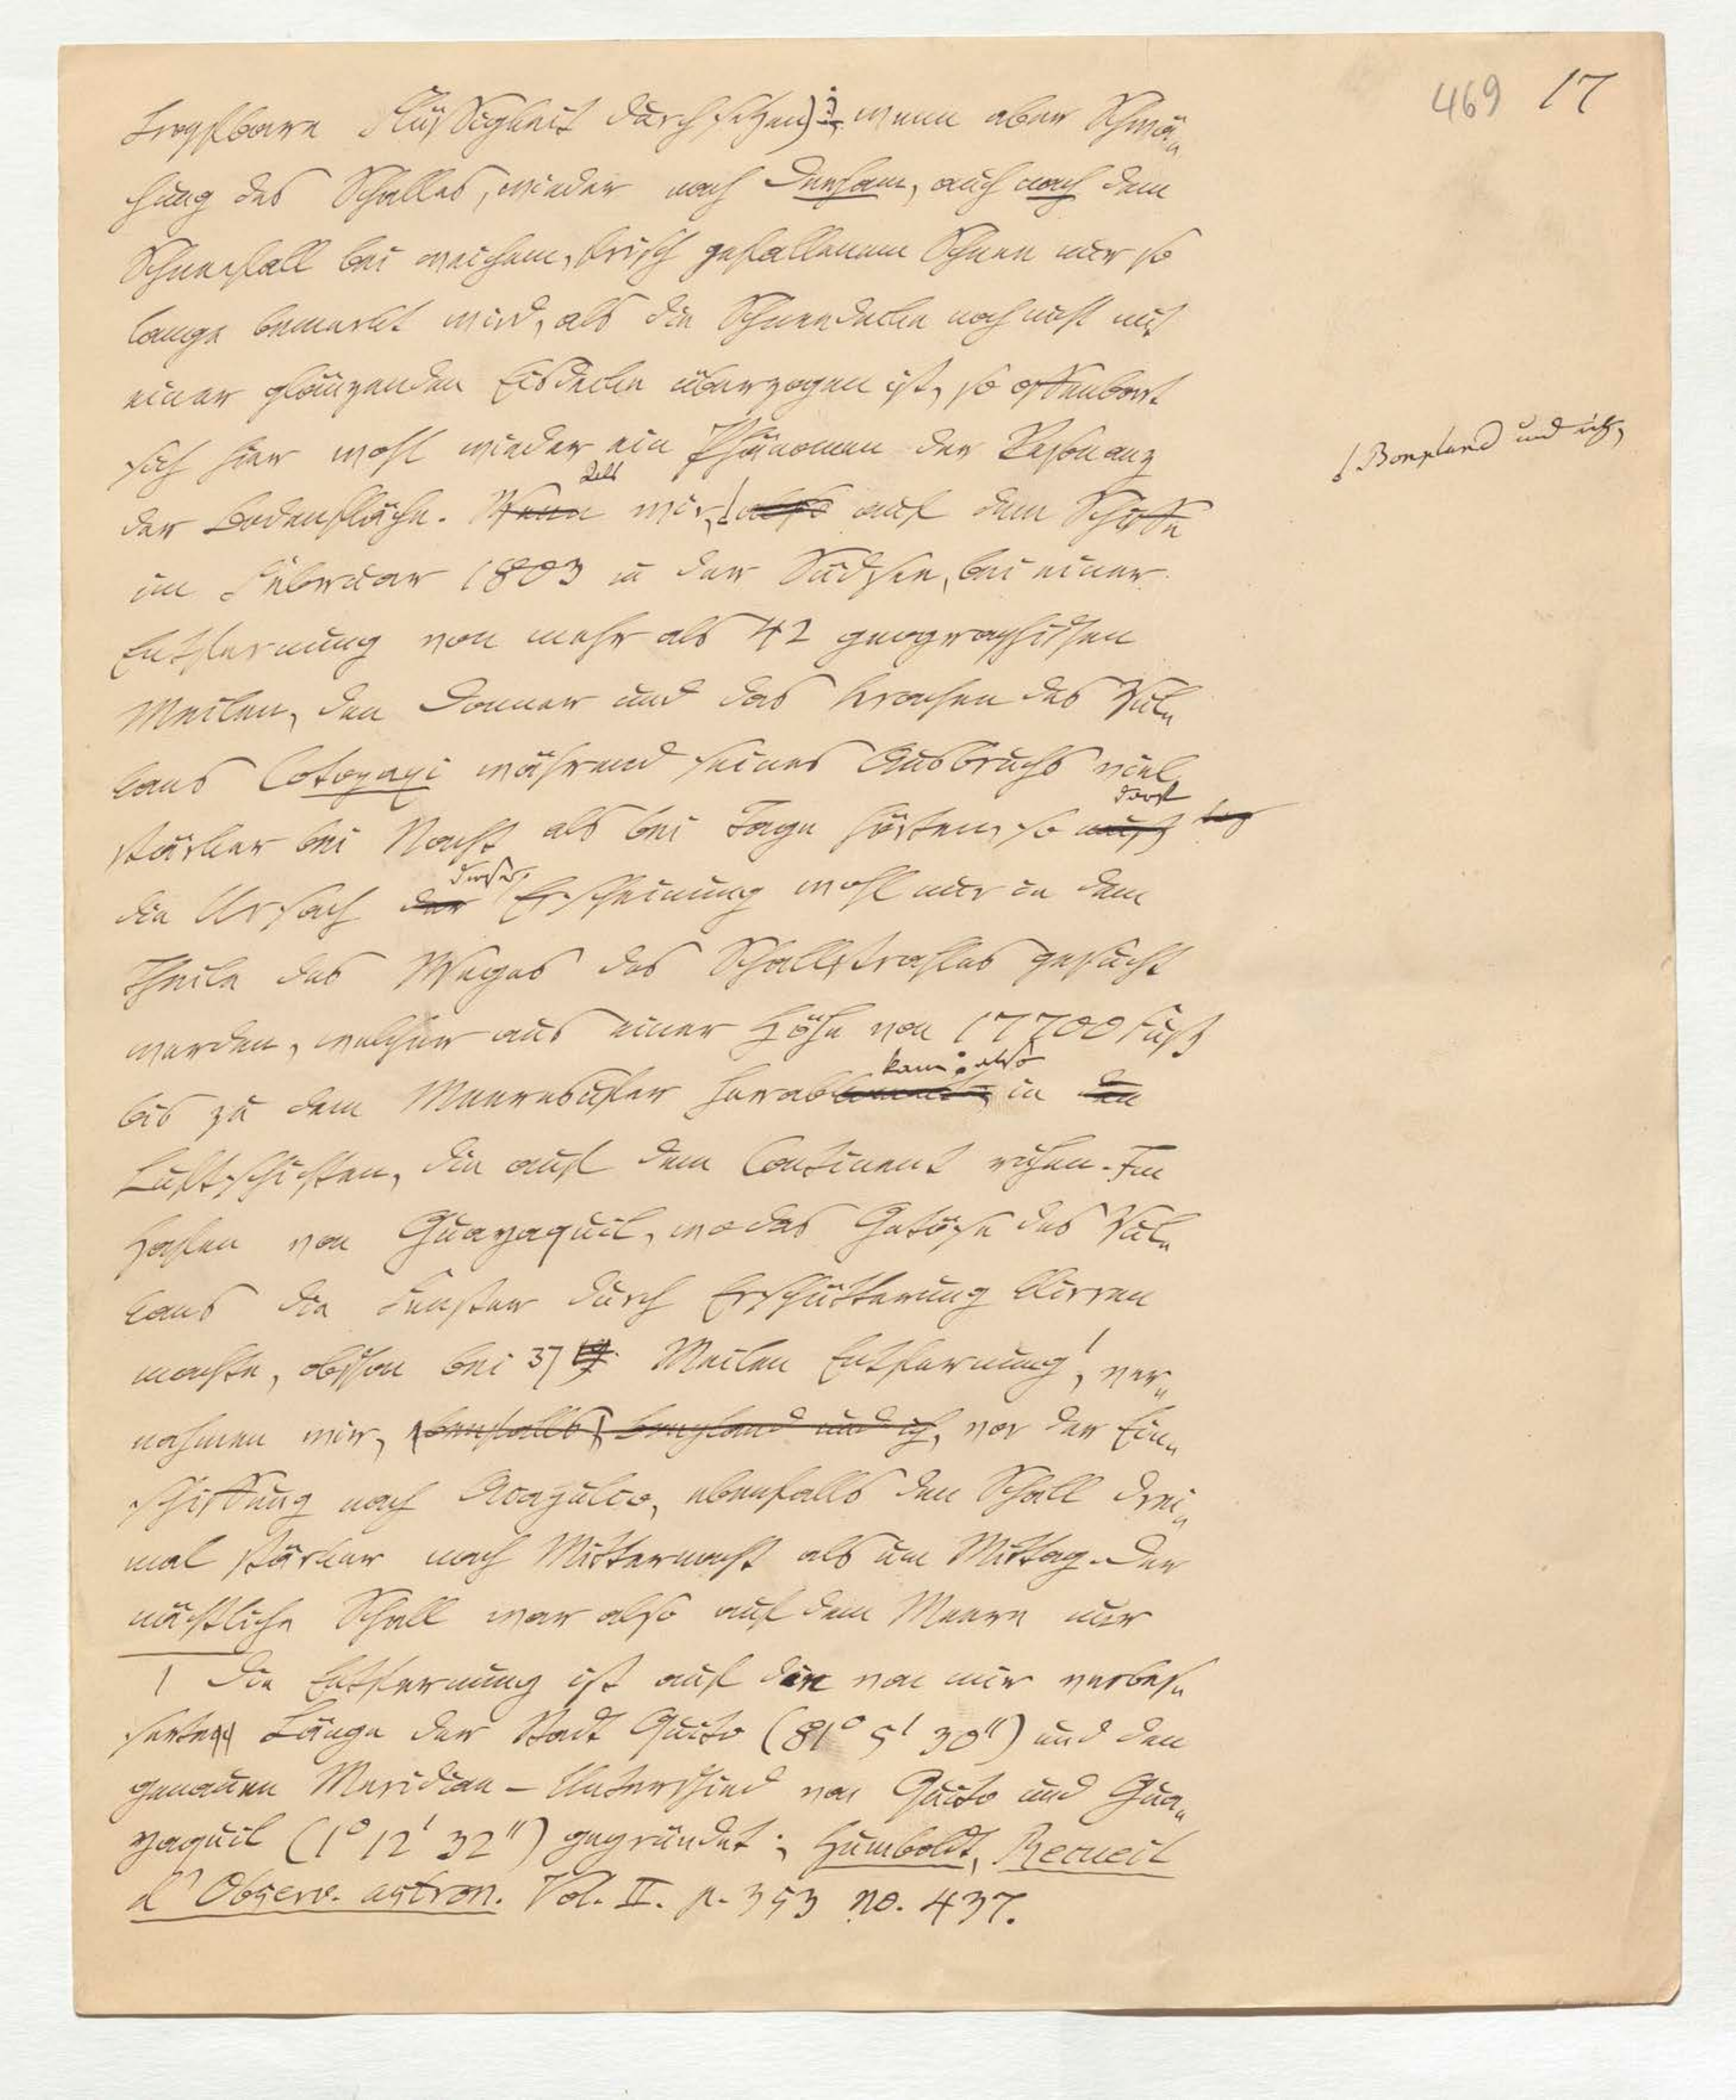 469 17
tropfbare Flüssigkeit durchsetzen); wenn aber Schwä-
chung des Schalles, wieder nach Derham, auch nach dem
Schneefall bei weichem, frisch gefallenem Schnee nur so
lange bemerkt wird, als die Schneedecke noch nicht mit
einer glänzenden Eisdecke überzogen ist, so offenbart
sich hier wohl wieder ein Phänomen der Resonanz
der Bodenfläche. Wenn Als wir, also auf dem Schiffe
⌈Bonpland und ich,
im Februar 1803 in der Südsee, bei einer
Entfernung von mehr als 42 geographischen
Meilen, den Donner und das Krachen des Vul-
kans Cotopaxi während seines Ausbruchs viel
stärker bei Nacht als bei Tage hörten, so muß darf
die Ursach der dieser Erscheinung wohl nur in dem
Theile des Weges des Schallstrahles gesucht
werden, welcher aus einer Höhe von 17700 Fuß
bis zu dem Meeresufer herabkommt, kam: also in den
Luftschichten, die auf dem Continent ruhen. Im
Hafen von Guayaquil, wo das Getöse des Vul-
kans die Fenster durch Erschütterung klirren
machte, obschon bei 37 Meilen Entfernung¹, ver-
nahmen wir, ebenfalls, Bonpland und ich, vor der Ein-
schiffung nach Acapulco, ebenfalls den Schall drei-
mal stärker nach Mitternacht als um Mittag. Der
nächtliche Schall war also auf dem Meere nur
1 Die Entfernung ist auf die von mir verbes-
serte Länge der Stadt Quito (81° 5' 30") und den
genauen Meridian-Unterschied von Quito und Gua-
yaquil (1° 12' 32") gegründet; Humboldt, Recueil
d'Observ. astron. Vol. II. p. 353 no. 437.